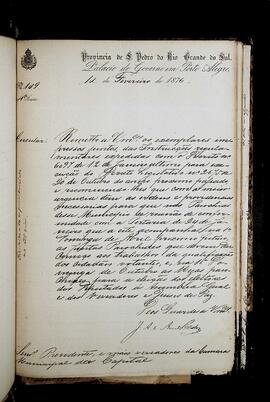 Provincia de S. Pedro do Rio Grande do Sul.
Palacio do Governo em Porto Alegre,
11 de Fevereiro de 1876
Nº 149
Circular
Remetto a Vmces os exemplares im-
pressos juntos das Instrucções regula-
mentares expedidas com o Decreto nº
6097 de 12 de Janeiro ultimo para exe-
cução do Decreto Legislativo nº 2675 de
20 de Outubro do anno proximo passado,
e recommendo-lhes que com a maior
urgencia dêem as ordens e providencias
necessarias para que nas Parochias
desse Municipio
formidade com a Portaria de 24 de Ja-
neiro que a esta acompanha, no 1º
Domingo de Abril proximo futuro,
as Juntas Parochiaes que devem dar
começo aos trabalhos da qualificação
dos cidadãos votantes, e no 1º Do-
mingo de Outubro as Mezas paro-
chiaes para a eleição dos Eleitores
dos Deputados á Assembléa Geral
e dos Vereadores e Juizes de Paz.
Deos Guarde a Vmces
Snrs Presidente, e mais vereadores da Camara
Municipal da Capital